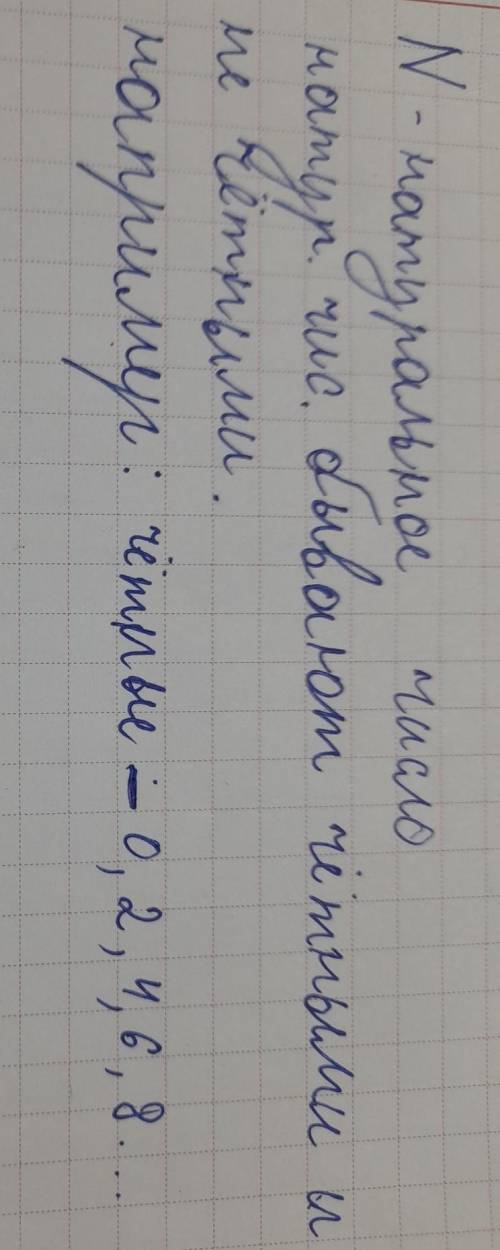 N - натуральное число
натур. чис. бывают чётными и
не чётными.
например: чётные - 0, 2, 4, 6, 8...